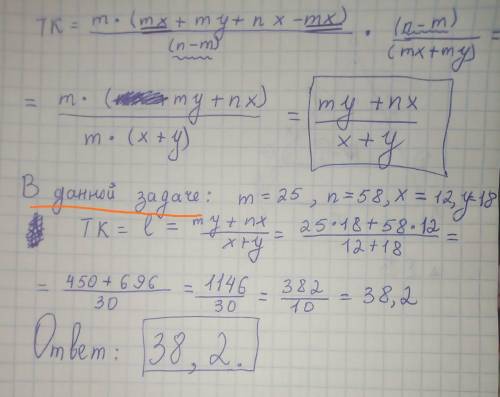 TK = m · (mx + my + nx - mx) / (n-m) · (n-m) / (mx+my) =
= m · (my + nx) / m · (x+y) = my + nx / x + y
В данной задаче: m=25, n=58, x=12, y=18
TK = l = my + nx / x+y = 25·18+58·12 / 12+18 =
= 450+696 / 30 = 1146 / 30 = 382 / 10 = 38,2
Ответ: 38,2.